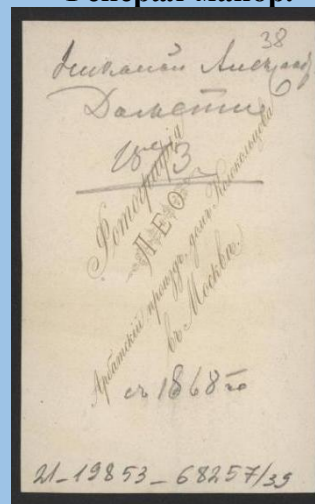 Генерал-майор.
38
Николай Александр
1873
Фотографія
ЛЕО
Арбатскій проѣздъ, домъ Колокольцова
въ Москвѣ.
съ 1868 го
21-19853-68257/39